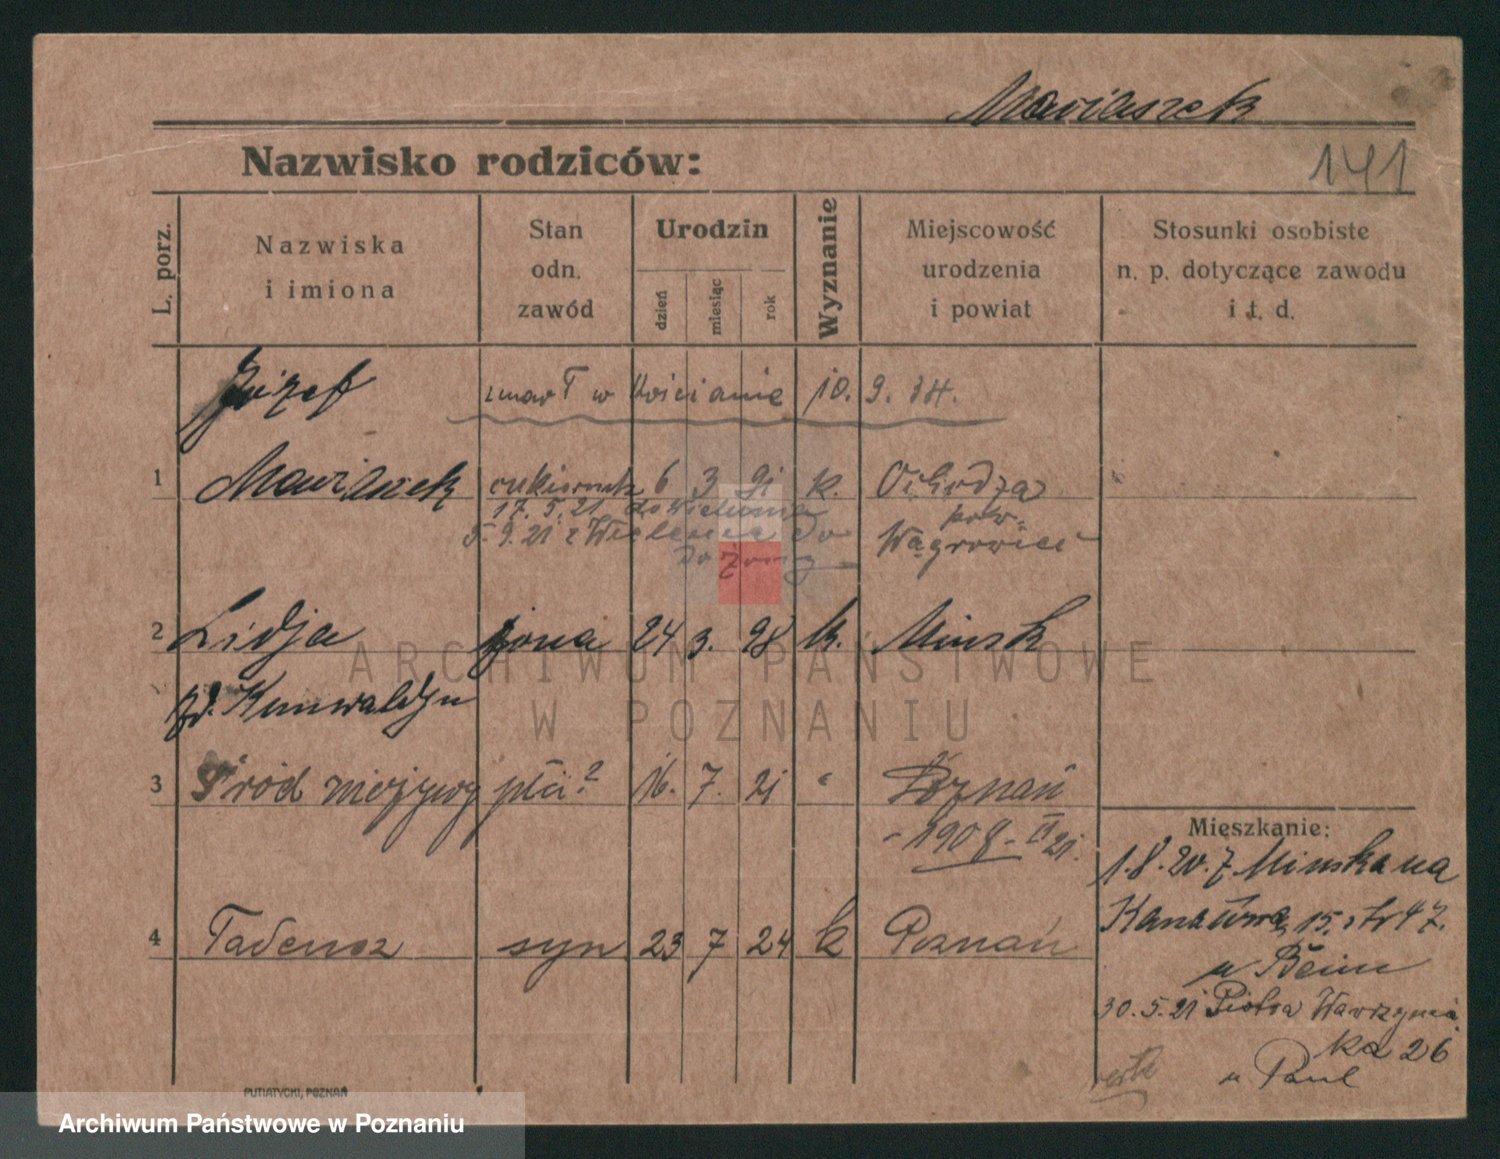 Nazwisko rodziców:
141
L. porz.
Nazwiska
i imiona
Stan
odn.
zawód
Urodzin
dzień
miesiąc
rok
Wyznanie
Miejscowość
urodzenia
i powiat
Stosunki osobiste
n. p. dotyczące zawodu
i t. d.
Józef zmarł w Kościanie 10. 9. 34.
1 cukiernik 6 3 91 k. Ochodza
17. 5. 21 do Wielunia pow.
5. 9. 21 z Wielenia do Wągrowiec
do żony
2 Lidja żona 24 3. 98 k. Minsk
zd. Kunwaldyn
3 Śród nieżywy płci? 16. 7. 21 " Poznań
1908 - II 21.
4 Tadeusz syn 23 7 24 k Poznań
Mieszkanie:
1. 8. 20. z Minska na
Kanałowa 15. tr 47.
u Beim
30. 5. 21 Piotra Wawrzynia
ka 26
u Paul
PUTIATYCKI, POZNAŃ
ARCHIWUM PAŃSTWOWE
W POZNANIU
Archiwum Państwowe w Poznaniu